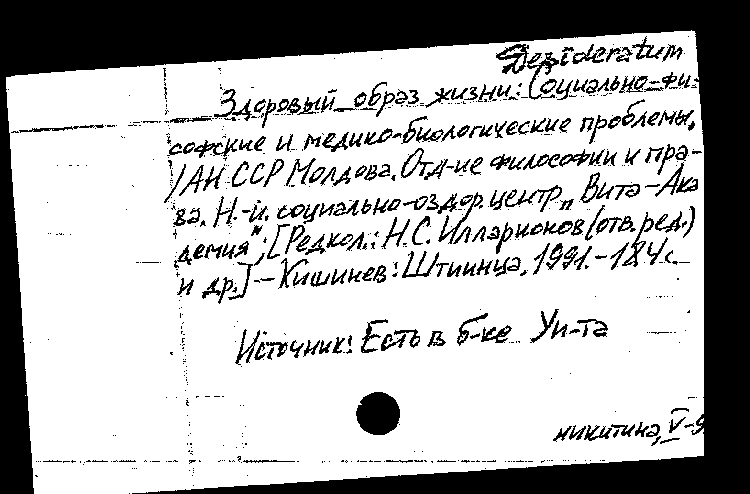 Desideratum
Здоровый образ жизни: Социально-фи-
софские и медико-биологические проблемы.
/АН ССР Молдова. Отд-ие философии и пра-
ва. Н.-и. социально-оздор. центр „Вита-Ака
демия"; [Редкол.: Н.С. Илларионов (отв. ред.)
и др.] – Кишинев: Штиинца, 1991. – 184 с.
Источник: Есть в б-ке Ун-та
никитина, V-9